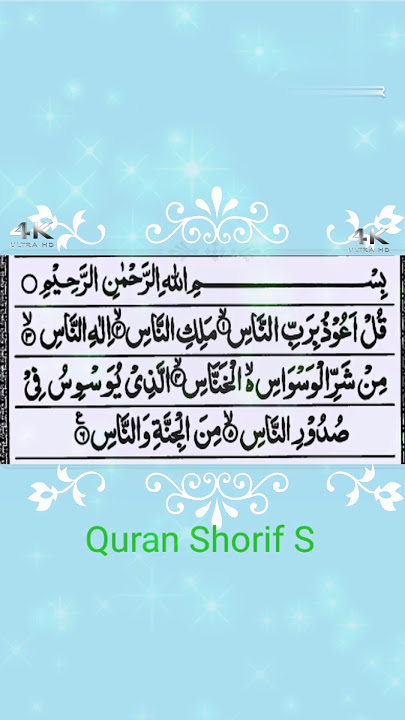 4K
ULTRA HD
4K
ULTRA HD
بِسْمِ اللهِ الرَّحْمٰنِ الرَّحِيْمِ ○
قُلْ اَعُوْذُ بِرَبِّ النَّاسِ ۙ﴿۱﴾ مَلِكِ النَّاسِ ۙ﴿۲﴾ اِلٰهِ النَّاسِ ۙ﴿۳﴾
مِنْ شَرِّ الْوَسْوَاسِ ۙ۬ الْخَنَّاسِ ۙ﴿۴﴾ الَّذِیْ یُوَسْوِسُ فِیْ
صُدُوْرِ النَّاسِ ۙ﴿۵﴾ مِنَ الْجِنَّةِ وَالنَّاسِ ﴿۶﴾ ع
Quran Shorif S